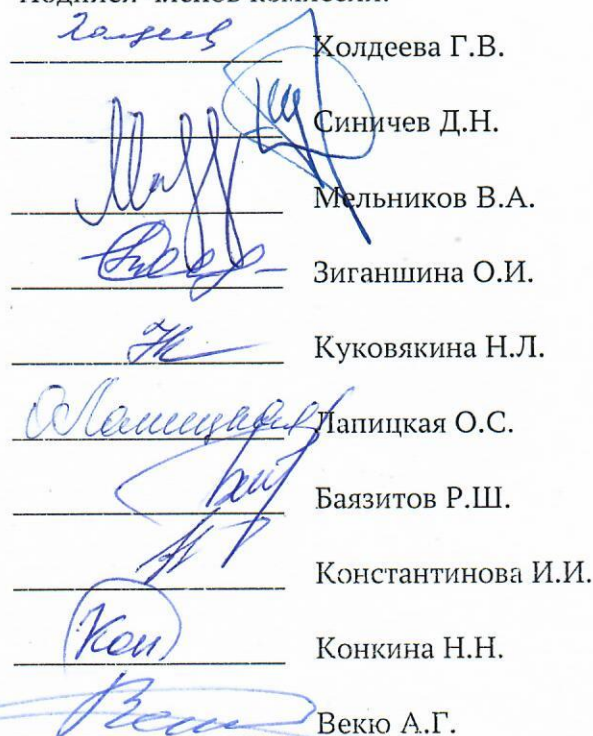 Подписи членов комиссии:
Холдеева Г.В.
Синичев Д.Н.
Мельников В.А.
Зиганшина О.И.
Куковякина Н.Л.
Лапицкая О.С.
Баязитов Р.Ш.
Константинова И.И.
Кон Конкина Н.Н.
Векю А.Г.